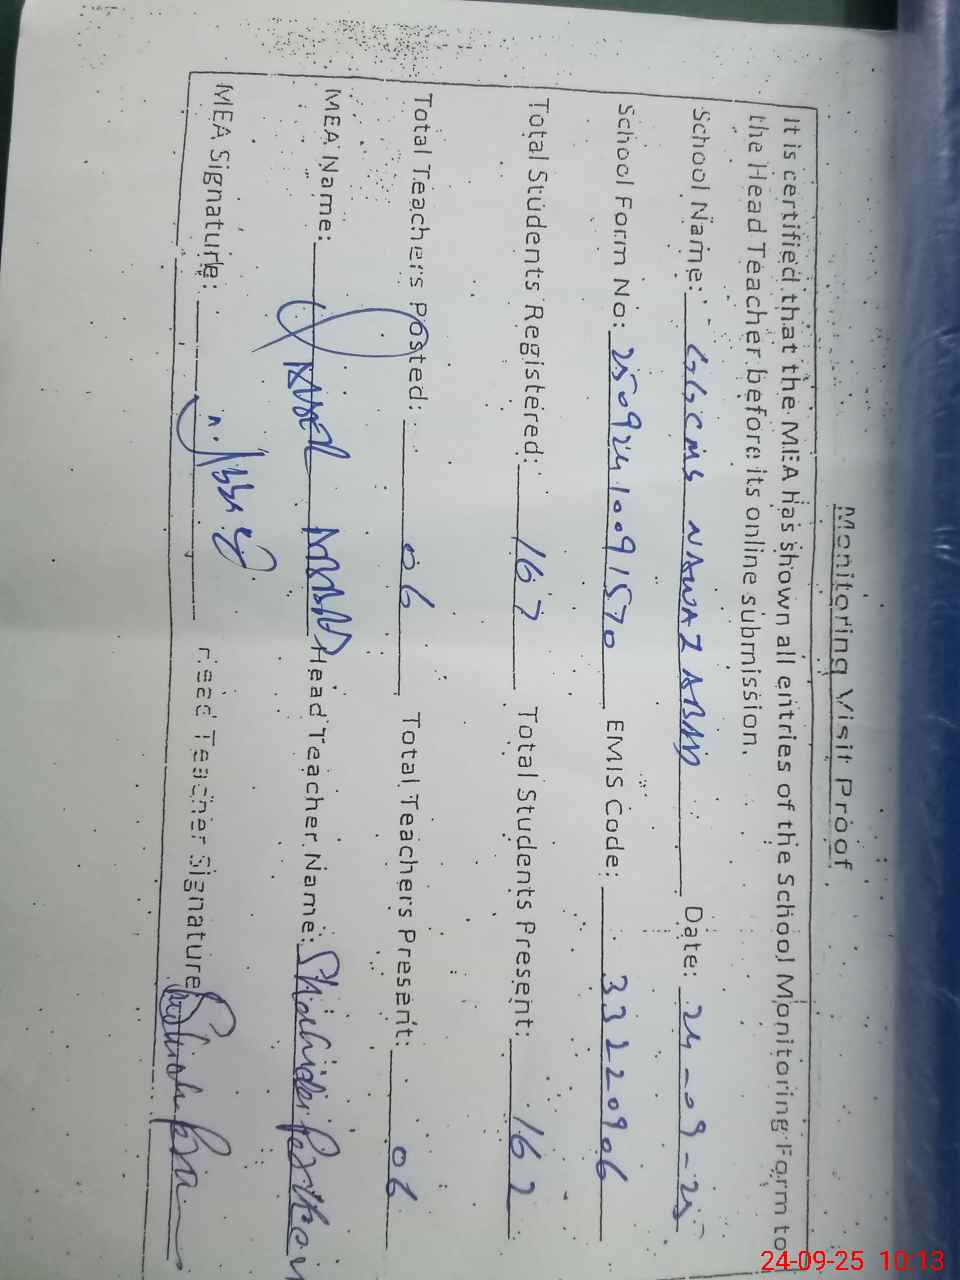 Monitoring Visit Proof
It is certified that the MEA has shown all entries of the School Monitoring Form to
the Head Teacher before its online submission.
School Name: GGCMS NAWAZ ABAD Date: 24-09-25
School Form No: 25092410091570 EMIS Code: 33220906
Total Students Registered: 167 Total Students Present: 162
Total Teachers Posted: 06 Total Teachers Present: 06
MEA Name: Head Teacher Name:
MEA Signature: Head Teacher Signature
24-09-25 10:13